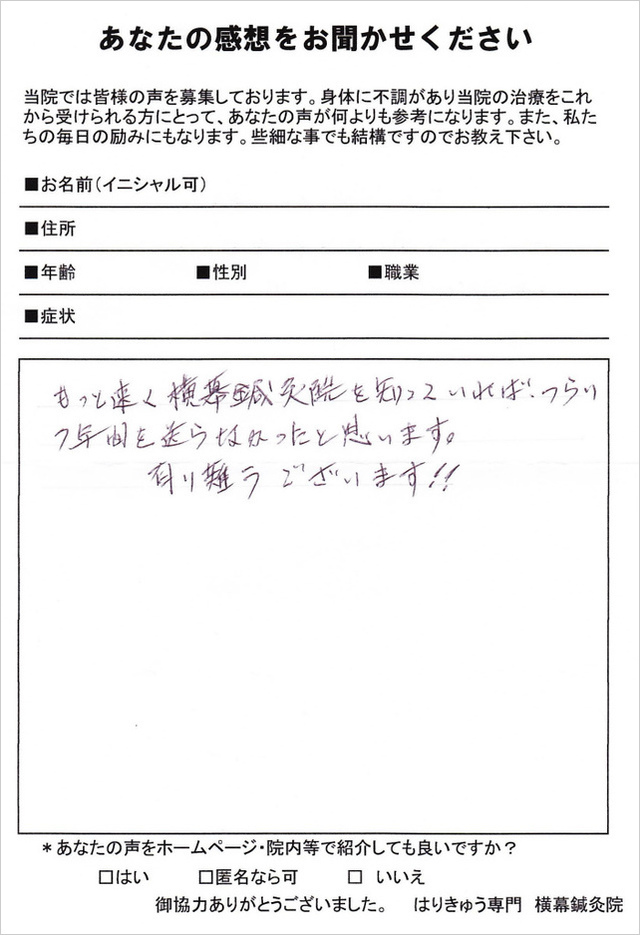 あなたの感想をお聞かせください
当院では皆様の声を募集しております。身体に不調があり当院の治療をこれ
から受けられる方にとって、あなたの声が何よりも参考になります。また、私た
ちの毎日の励みにもなります。些細な事でも結構ですのでお教え下さい。
■お名前(イニシャル可)
■住所
■年齢 ■性別 ■職業
■症状
もっと速く横幕鍼灸院を知っていれば、つらい
7年間を送らなかったと思います。
有り難うございます!!
*あなたの声をホームページ・院内等で紹介しても良いですか?
□はい □匿名なら可 □ いいえ
御協力ありがとうございました。 はりきゅう専門 横幕鍼灸院